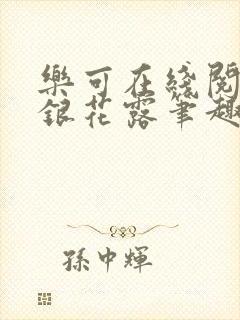 樂可在綫閱
銀花露筆趣
孫中輝